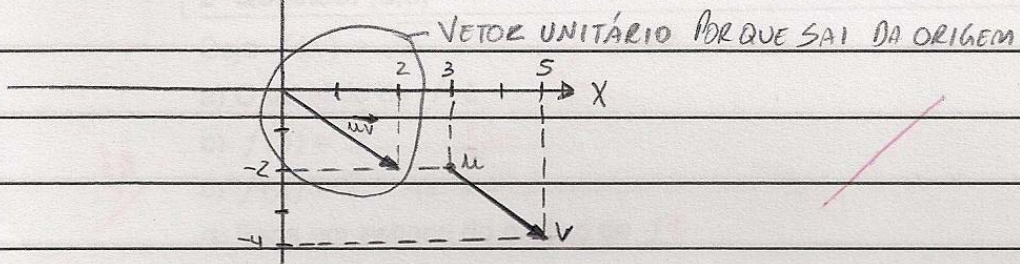 VETOR UNITÁRIO PORQUE SAI DA ORIGEM
2 3 5
X
uv
-2 u
-4 V